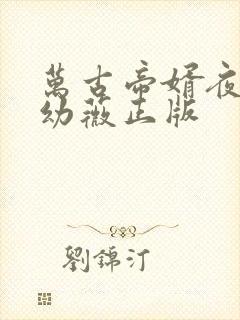 萬古帝婿夜
幼薇正版
劉錦汀